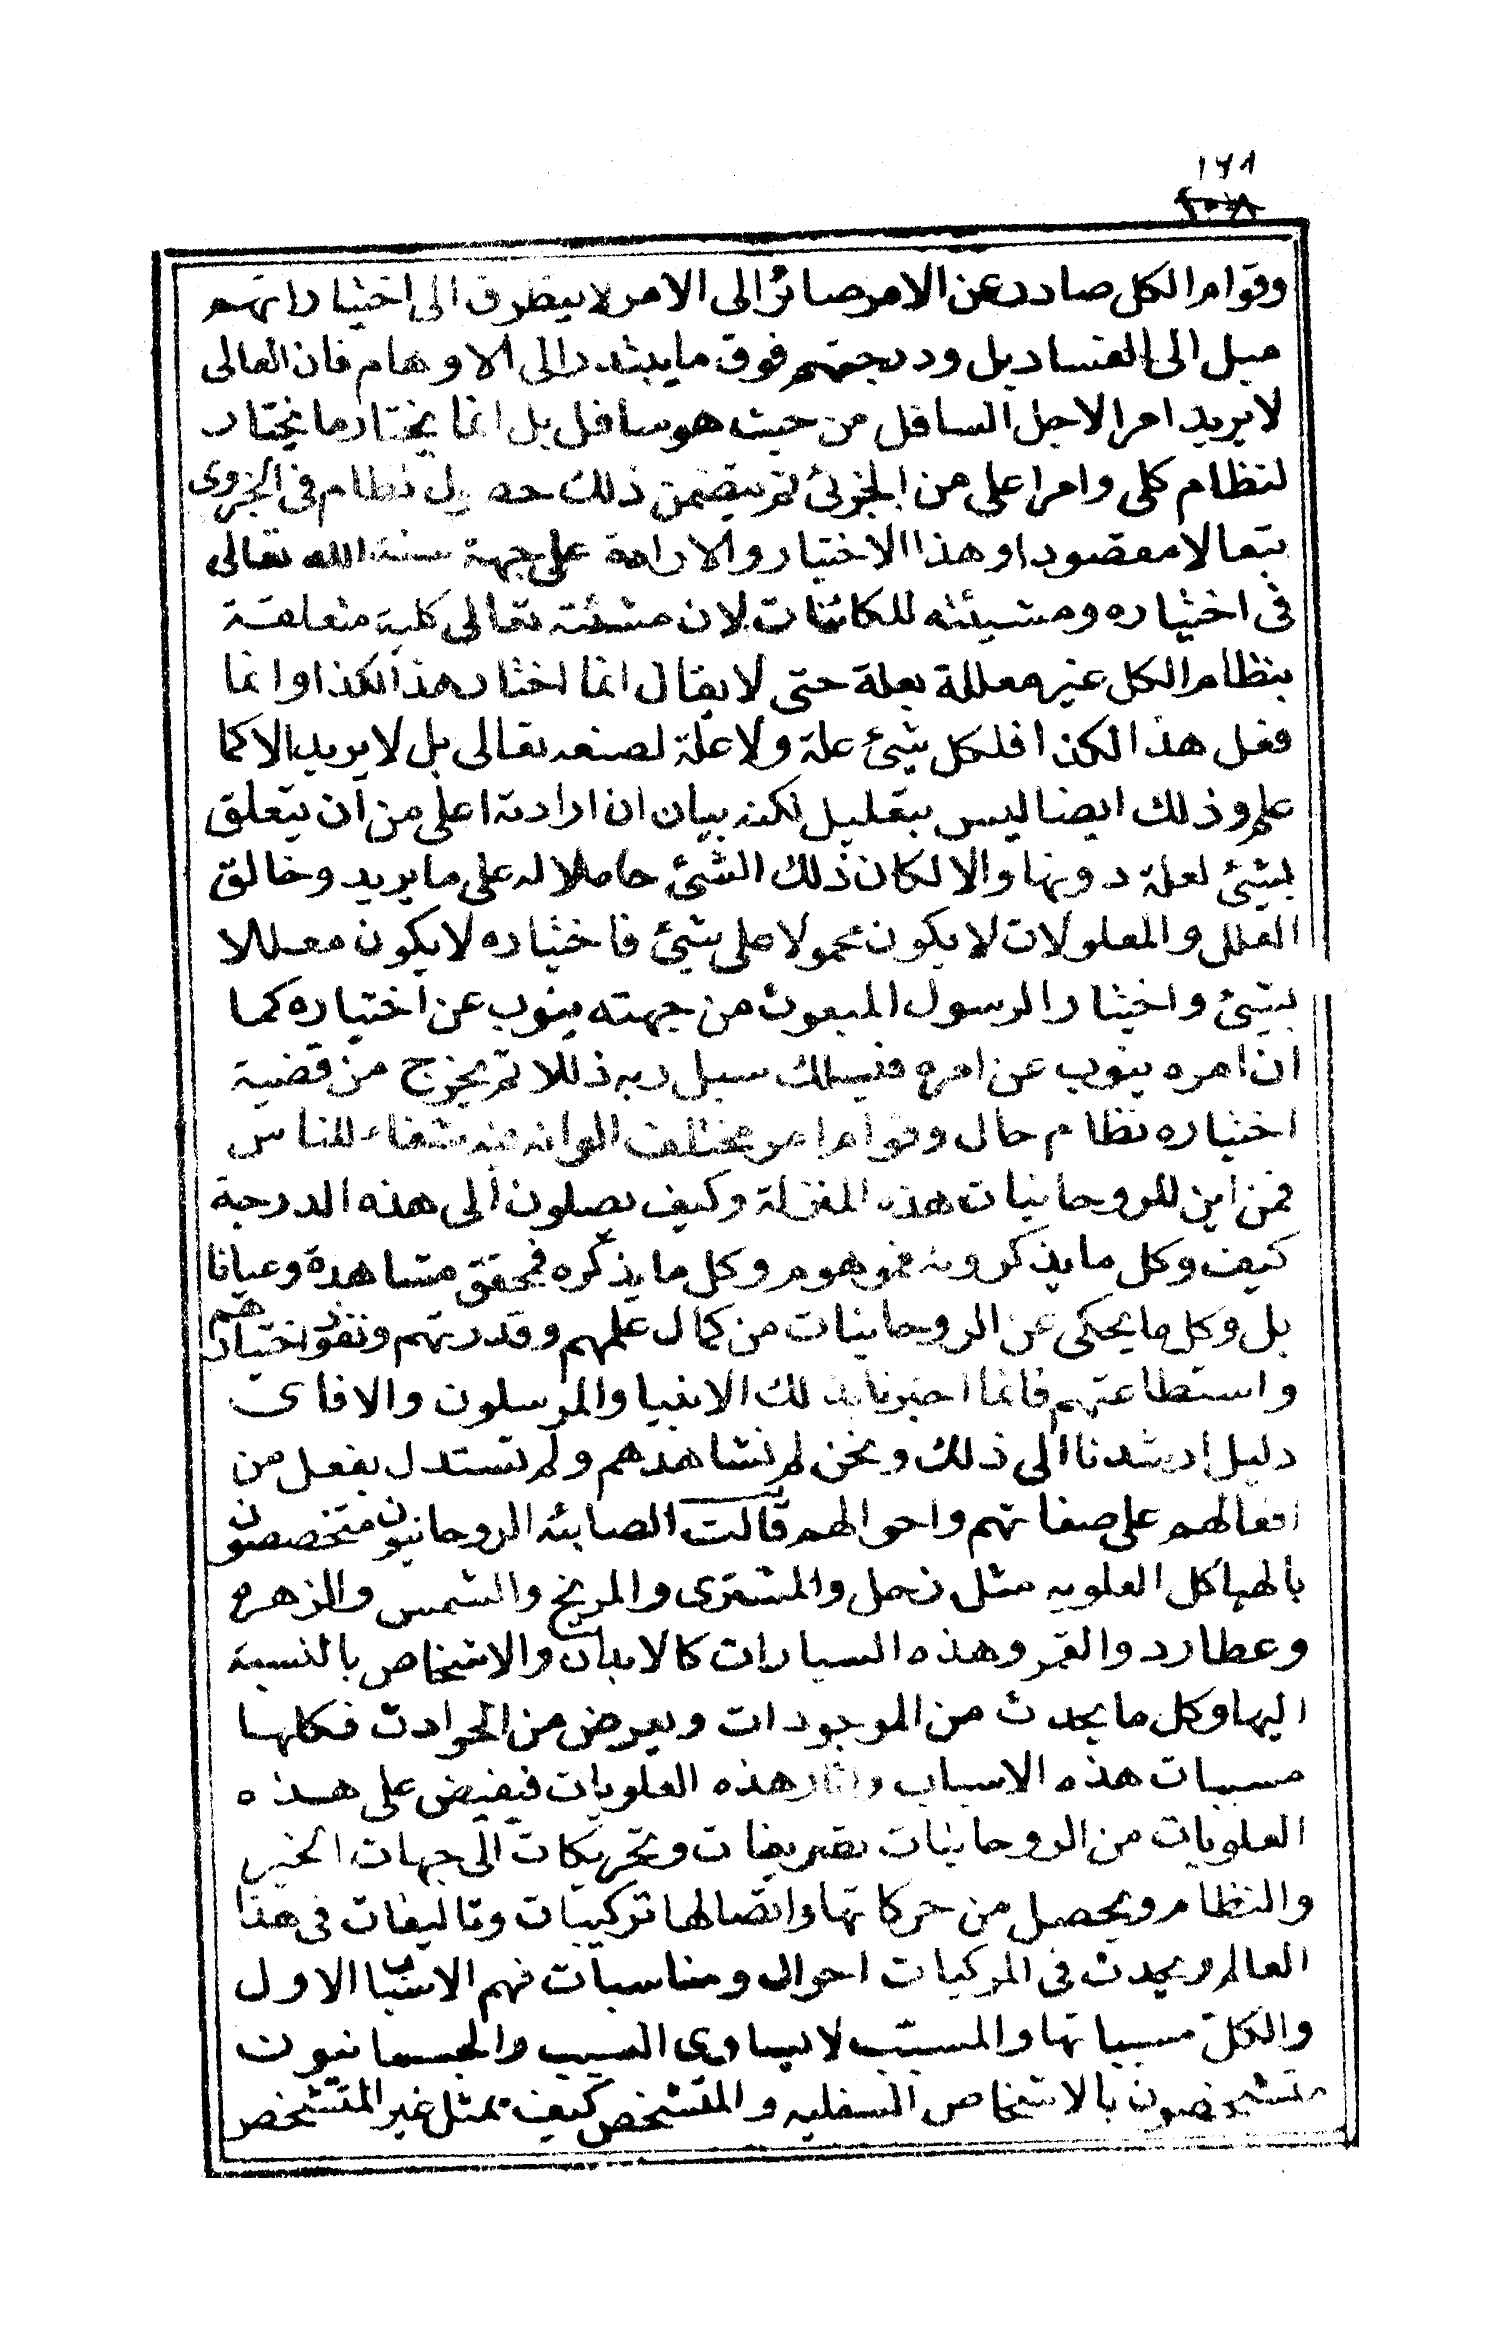 ١٦٨
٢٠٨
وقوام الكل صادر عن الامر صائرا الى الامر لا يتطرق الى اختياراتهم
ميل الى الفساد بل ودرجتهم فوق ما يبتدر الى الاوهام فان العالى
لا يريد امرا لاجل السافل من حيث هو سافل بل انما يختار ما يختار
لنظام كلى وامرا على من الجزوئ ثم يتضمن ذلك حصول نظام فى الجزوى
تبعا لا مقصودا وهذا الاختيار والارادة على جهة سنة الله تعالى
فى اختياره ومشيئته للكائنات لان مشئته تعالى كلية متعلقة
بنظام الكل غير معللة بعلة حتى لا يقال انما اختار هذا لكذا وانما
فعل هذا لكذا فلكل شيئ علة ولا علة لصنعه تعالى بل لا يريد الا كما
علم وذلك ايضا ليس بتعليل لكنه بيان ان ارادته اعلى من ان يتعلق
بشيئ لعلة دونها والا لكان ذلك الشيئ حاملا له على ما يريد وخالق
العلل والمعلولات لا يكون محمولا على شيئ فاختياره لا يكون معللا
بشيئ واختيار الرسول المبعوث من جهته ينوب عن اختياره كما
ان امره ينوب عن امره فيسلك سبل ربه ذللا ثم يخرج من قضية
اختياره نظام حال وقوام امر مختلف الوانه فيه شفاء للناس
فمن اين للروحانيات هذه المنزلة وكيف يصلون الى هذه الدرجة
كيف وكل ما يذكرونه فموهوم وكل ما يذكره فمحقق مشاهدة وعيانا
بل وكل ما يحكى عن الروحانيات من كمال علمهم وقدرتهم ونفوذ اختيارهم
واستطاعتهم فانما اخبرنا بذلك الانبيا والمرسلون والا فاى
دليل ارشدنا الى ذلك ونحن لم نشاهدهم ولم نستدل بفعل من
افعالهم على صفاتهم واحوالهم قالت الصابئه الروحانيون متخصصون
بالهياكل العلويه مثل زحل والمشترى والمريخ والشمس والزهره
وعطارد والقمر وهذه السيارات كالابدان والاشخاص بالنسبة
اليها وكل ما يحدث من الموجودات ويعرض من الحوادث فكلها
مسببات هذه الاسباب واثار هذه العلويات فيفيض على هذه
العلويات من الروحانيات تصريفات وتحريكات الى جهات الخير
والنظام ويحصل من حركاتها واتصالها تركيبات وتاليفات فى هذا
العالم ويحدث فى المركبات احوال ومناسبات فهم الاسباب الاول
والكل مسبباتها والمسبب لا يساوى السبب والجسمانيون
متشخصون بالاشخاص السفليه والمتشخص كيف يمثل غير المتشخص